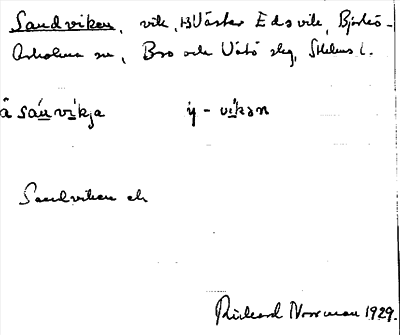 Sandviken, vik, Väster Edsvik, Björkö-
Arholma sn, Bro och Vätö slg, Sthlms l.
å sá̱nvi̱kja      i̱ - vi̱kən
Sandviken ek
Rickard Norrman 1929.